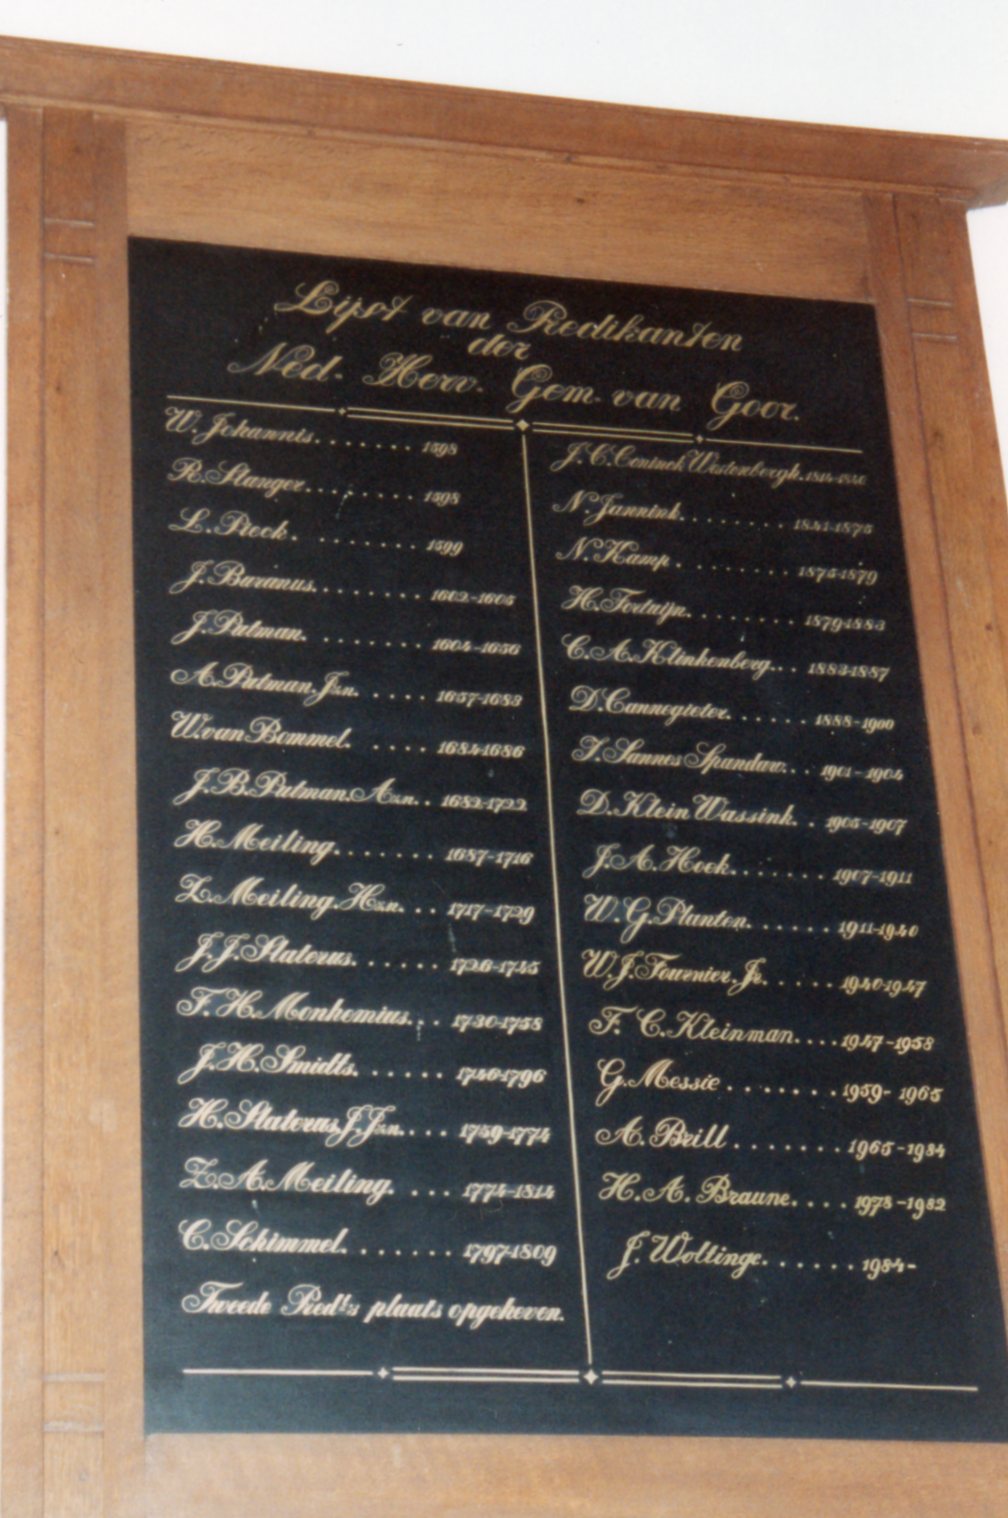 Lijst van Predikanten
der
Ned. Herv. Gem. van Goor.
W. Johannis........ 1598
R. Stanger......... 1598
L. Pieck.......... 1599
J. Buranus......... 1602-1605
J. Putman......... 1604-1656
A. Putman. Jzn...... 1657-1683
W. van Bommel. .... 1684-1686
J. B. Putman. Azn.. 1682-1722
H. Meiling........ 1687-1716
Z. Meiling. Hzn... 1717-1729
J. J. Staterus....... 1726-1745
F. H. Monhemius... 1730-1758
J. H. Smidts....... 1746-1796
H. Staterus, J. Jzn.... 1759-1774
Z. A. Meiling. .... 1774-1814
C. Schimmel........ 1797-1809
Tweede Pred ts plaats opgeheven.
J. C. Coninck Westenbergh. 1814-1840
N. Jannink......... 1841-1875
N. Kamp.......... 1875-1879
H. Fortuijn......... 1879-1883
C. A. Klinkenberg... 1883-1887
D. Cannegieter....... 1888-1900
T. Sannes Spandaw... 1901-1904
D. Klein Wassink. .. 1905-1907
J. A. Hoek........ 1907-1911
W. G. Planten....... 1911-1940
W. J. Fournier, Jr...... 1940-1947
F. C. Kleinman.... 1947-1958
G. Messie........ 1959-1965
A. Brill........ 1965-1984
H. A. Braune.... 1978-1982
J. Woltinge....... 1984-